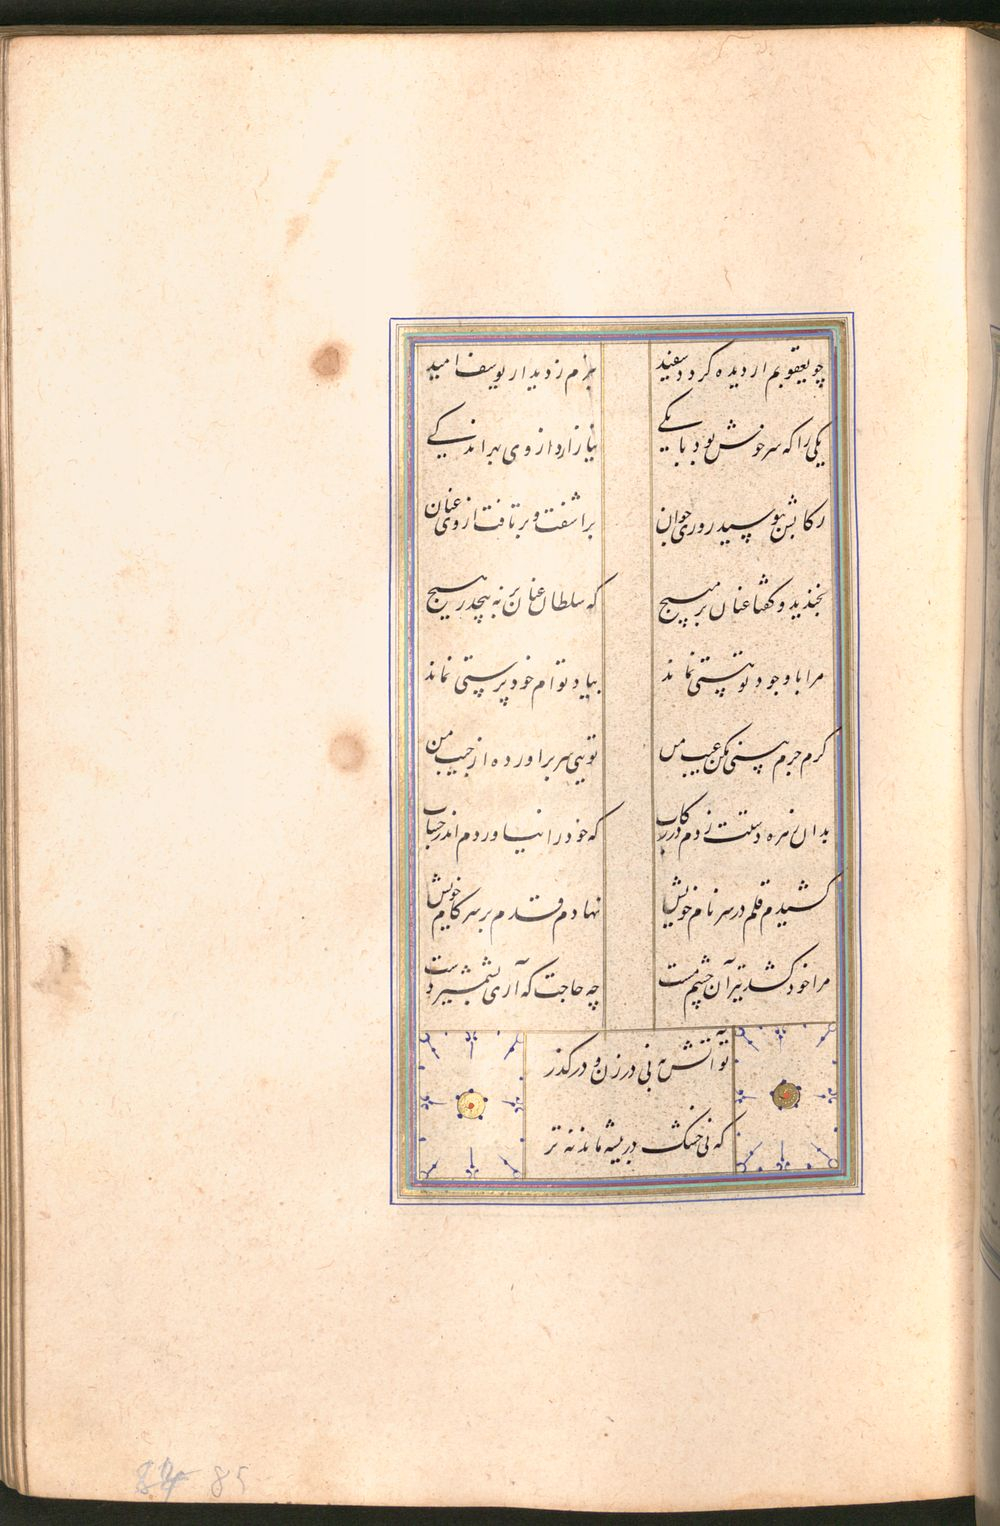 چو یعقوبم ار دیده گردد سفید نبرم ز دیدار یوسف امید
یکی را که سر خوش بود با یکی نیازارد از وی بهر اندکی
رکابش ببوسید روزی جوان براشفت و برتافت از وی عنان
بخندید و گفتا عنان بر مپیچ که سلطان عنان بر نه پیچد ز هیچ
مرا با وجود تو هستی نماند بیاد توام خود پرستی نماند
گرم جرم بینی مکن عیب من تویی سر براورده از جیب من
بدان زهره دستت زدم در رکاب که خود را نیاوردم اندر حساب
کشیدم قلم در سر نام خویش نهادم قدم بر سر کام خویش
مرا خود کشد تیر آن چشم مست چه حاجت که آری بشمشیر دست
تو آتش به نی در زن و در گذر
که نی خشک در بیشه ماند نه تر
84 85